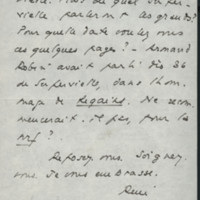 de quel Super-
vielle, parlent les grands?
Pour quelle date voulez vous
ces quelques pages? - Armand
Robin avait parlé dès 36
de Supervielle, dans l'hom-
mage de Regains. Ne recom-
mencerait-il pas, pour la
nrf?
Reposez vous. Soignez
vous. Je vous embrasse.